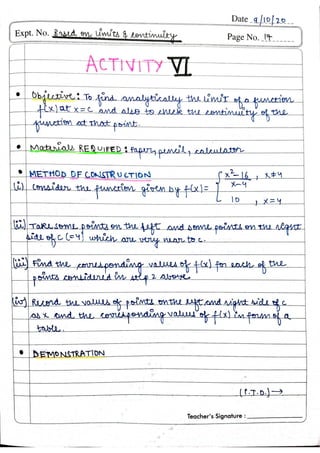 Date 9/10/20
Expt. No. Based on Limits & Continuity
Page No. 17
ACTIVITY VI
• Objective: To find analytically the limit of a function
f(x) at x=c and also to check the continuity of the
function at that point.
• Materials REQUIRED: Paper, pencil, calculator
• METHOD OF CONSTRUCTION
(i) Consider the function given by f(x) = { x²-16 / x-4 , x≠4
10 , x=4
(ii) Take some points on the left and some points on the right
side of c (=4) which are very near to c.
(iii) Find the corresponding values of f(x) for each of the
points considered in step 2 above.
(iv) Record the values of points on the left and right side of c
as x and the corresponding values of f(x) in form of a
table.
• DEMONSTRATION
(P.T.O.)→
Teacher's Signature :